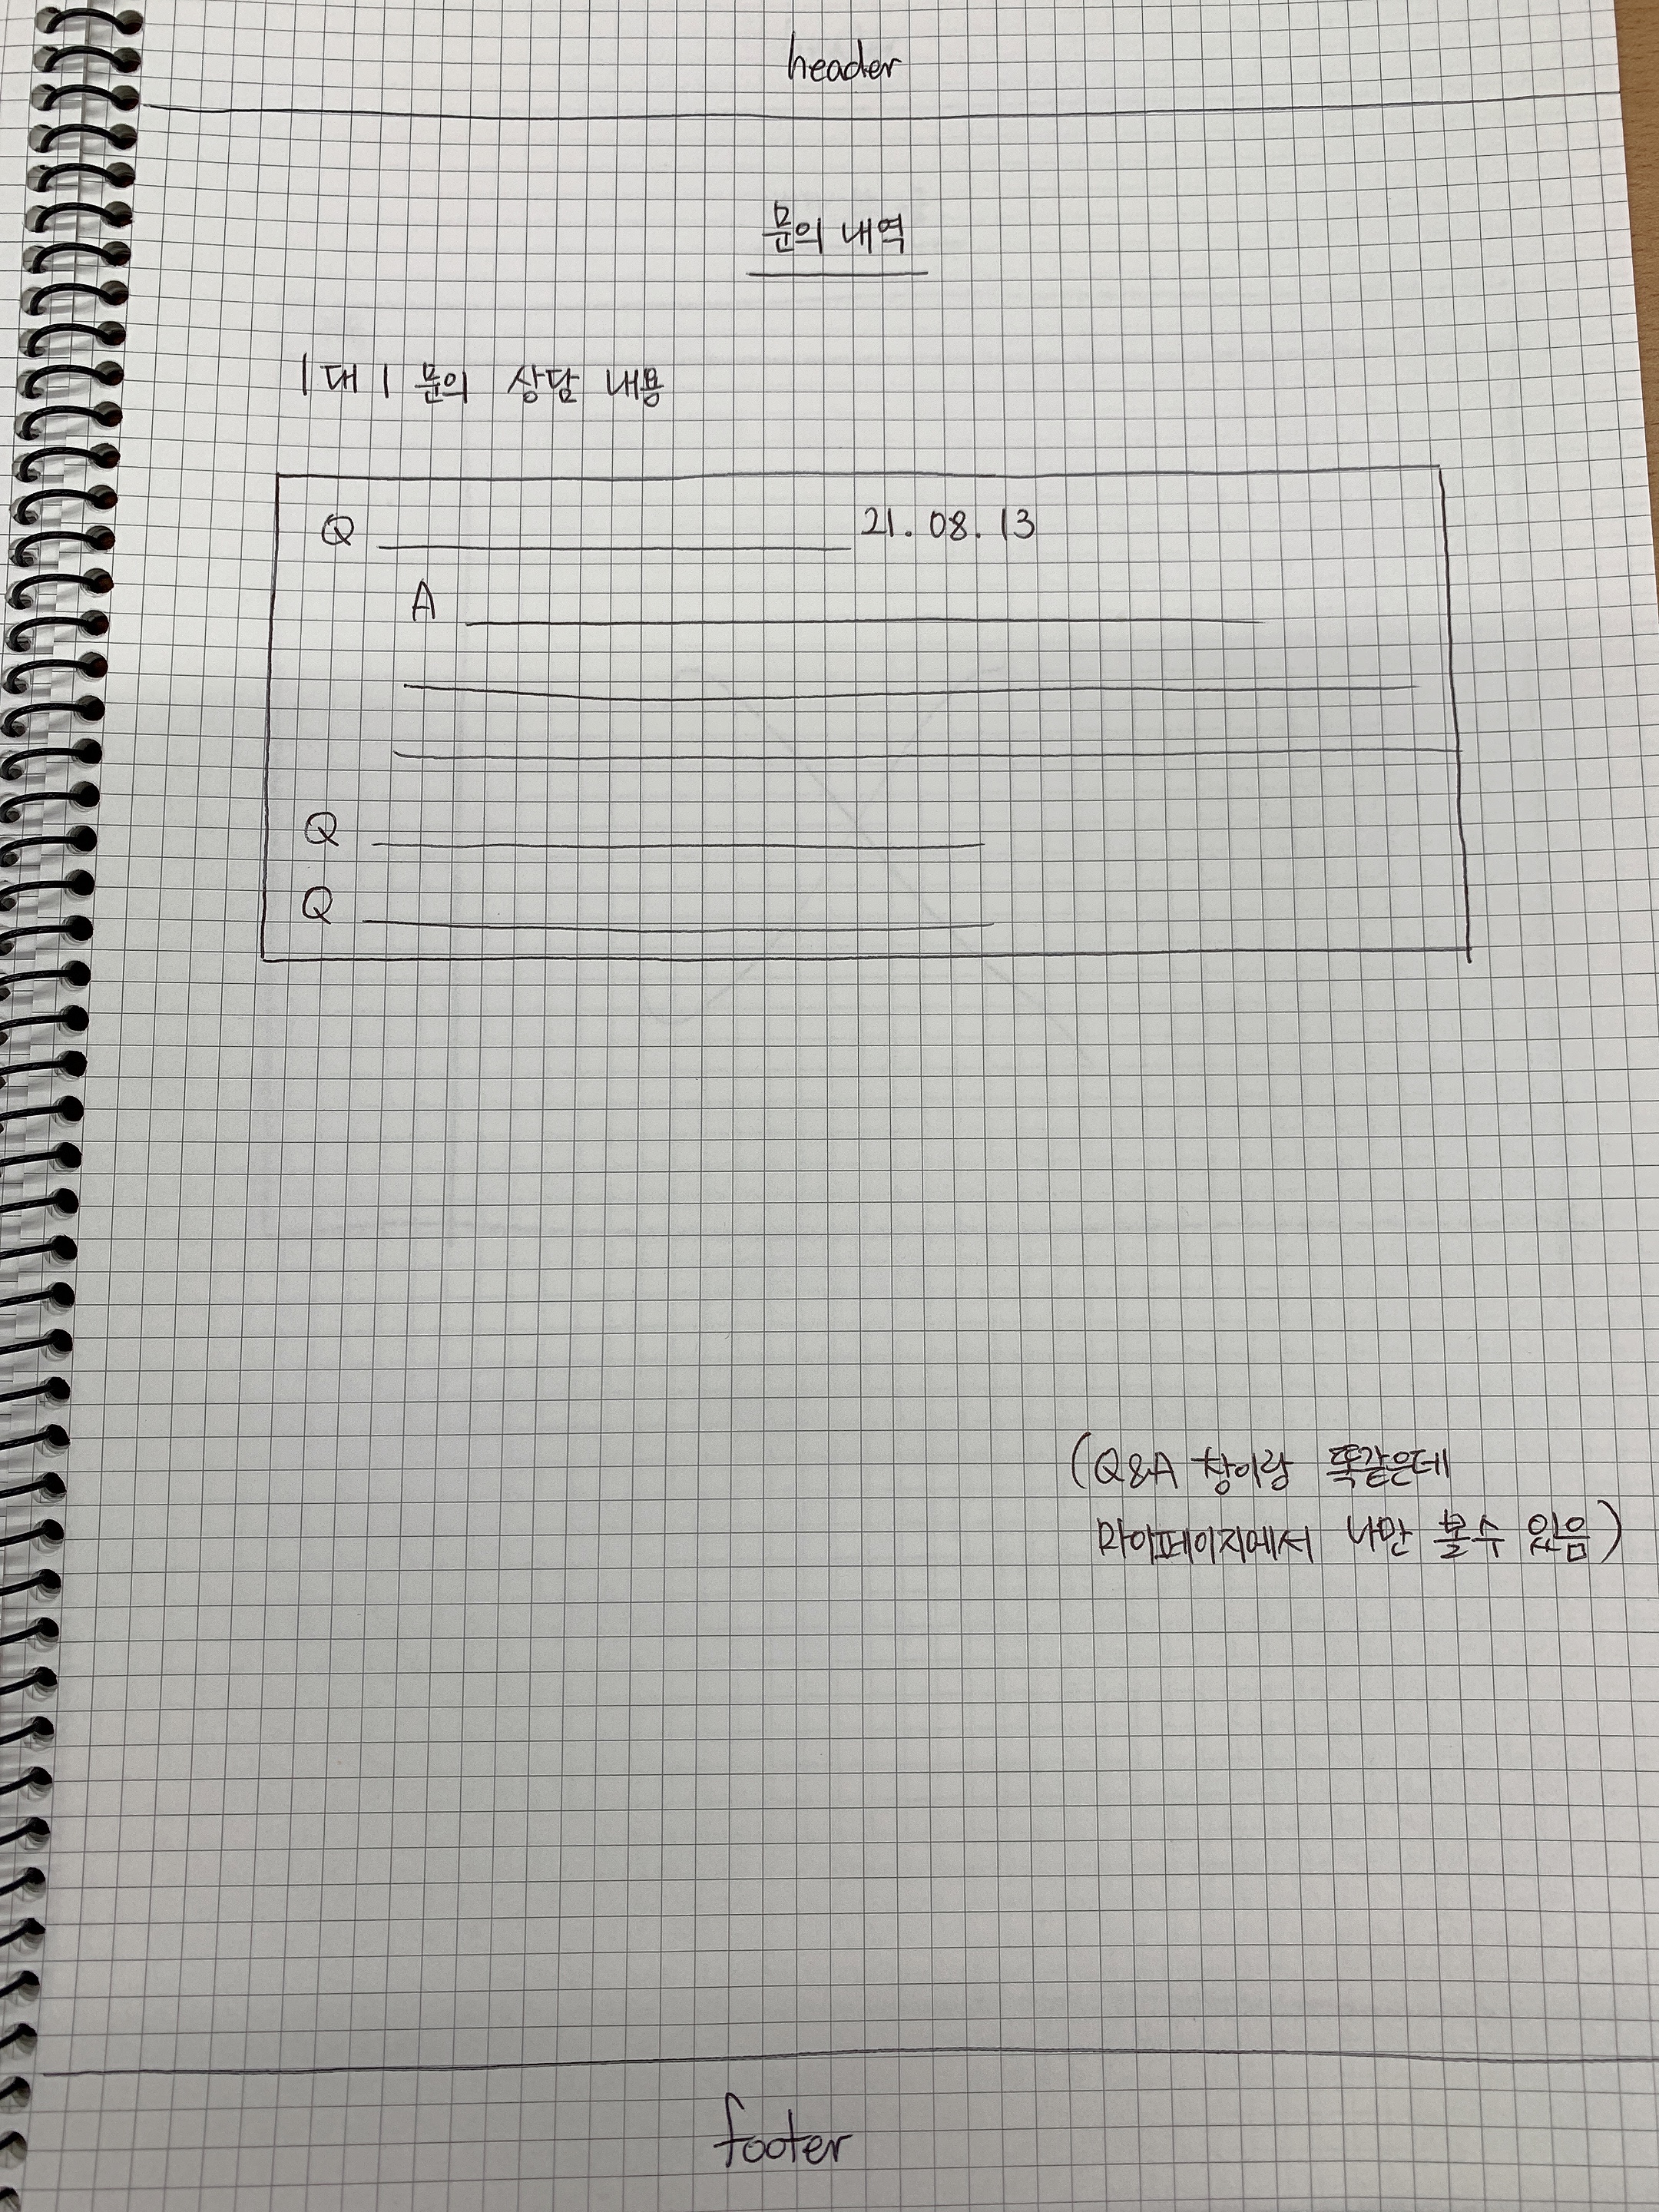 header
문의 내역
1대1 문의 상담 내용
Q 21. 08. 13
A
Q
Q
(Q&A 창이랑 똑같은데
마이페이지에서 나만 볼수 있음)
footer